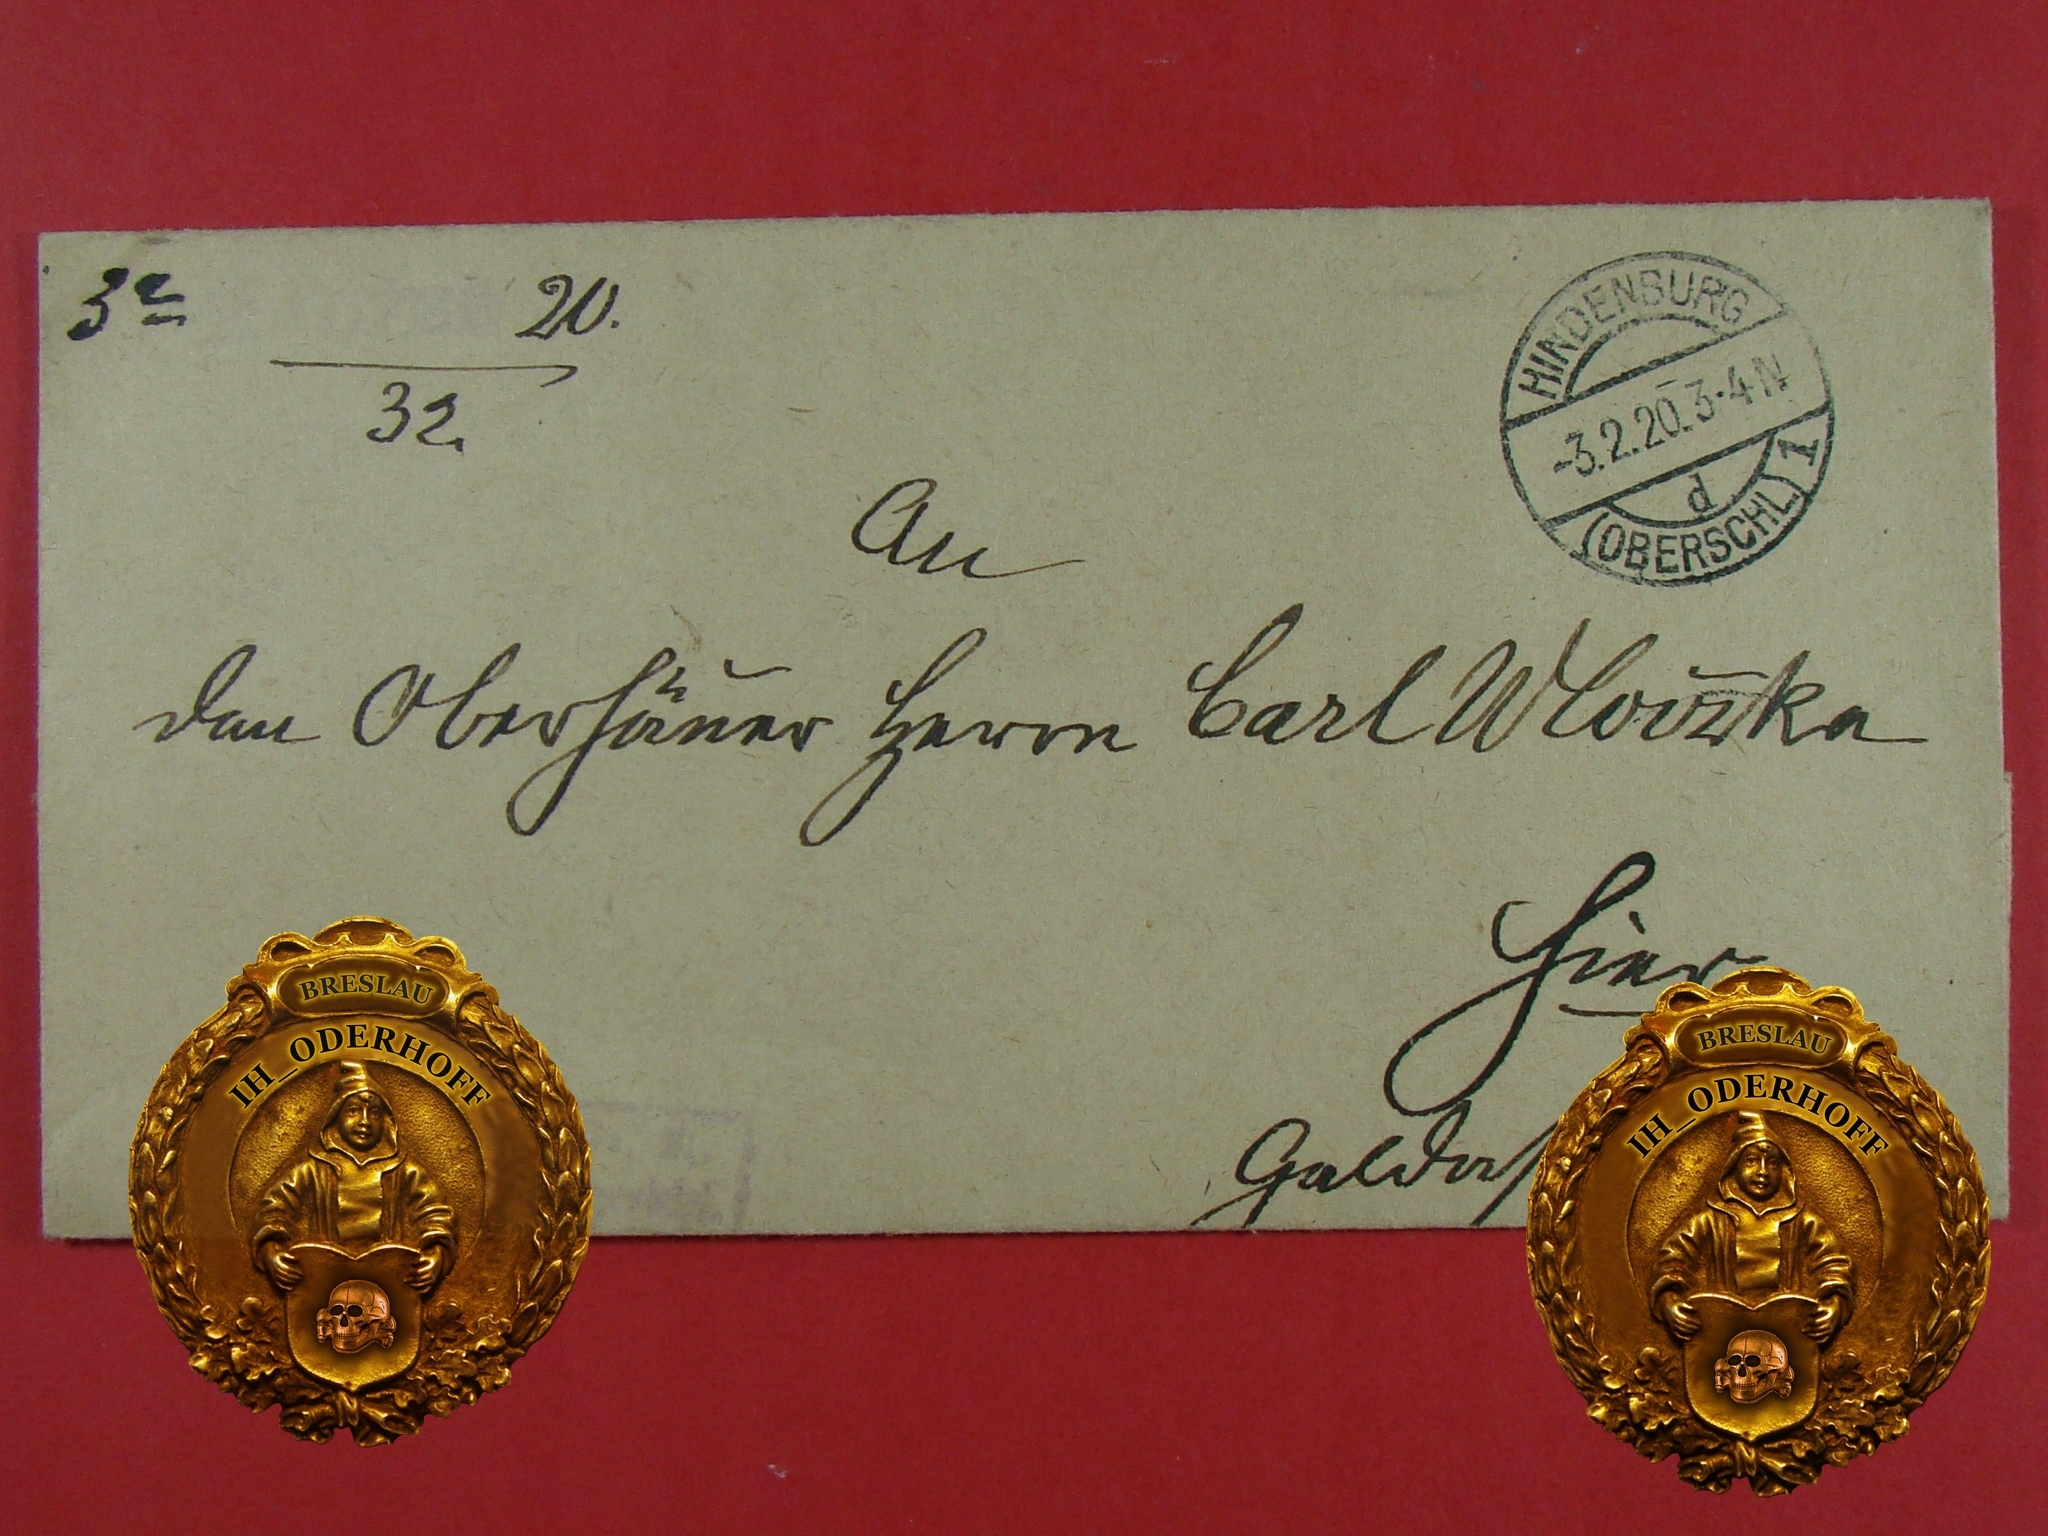 32
20.
32.
HINDENBURG
-3.2.20. 3-4 N
d
(OBERSCHL) 1
An
den Oberhäuer Herrn Carl
Hier
BRESLAU
IH_ODERHOFF
BRESLAU
IH_ODERHOFF